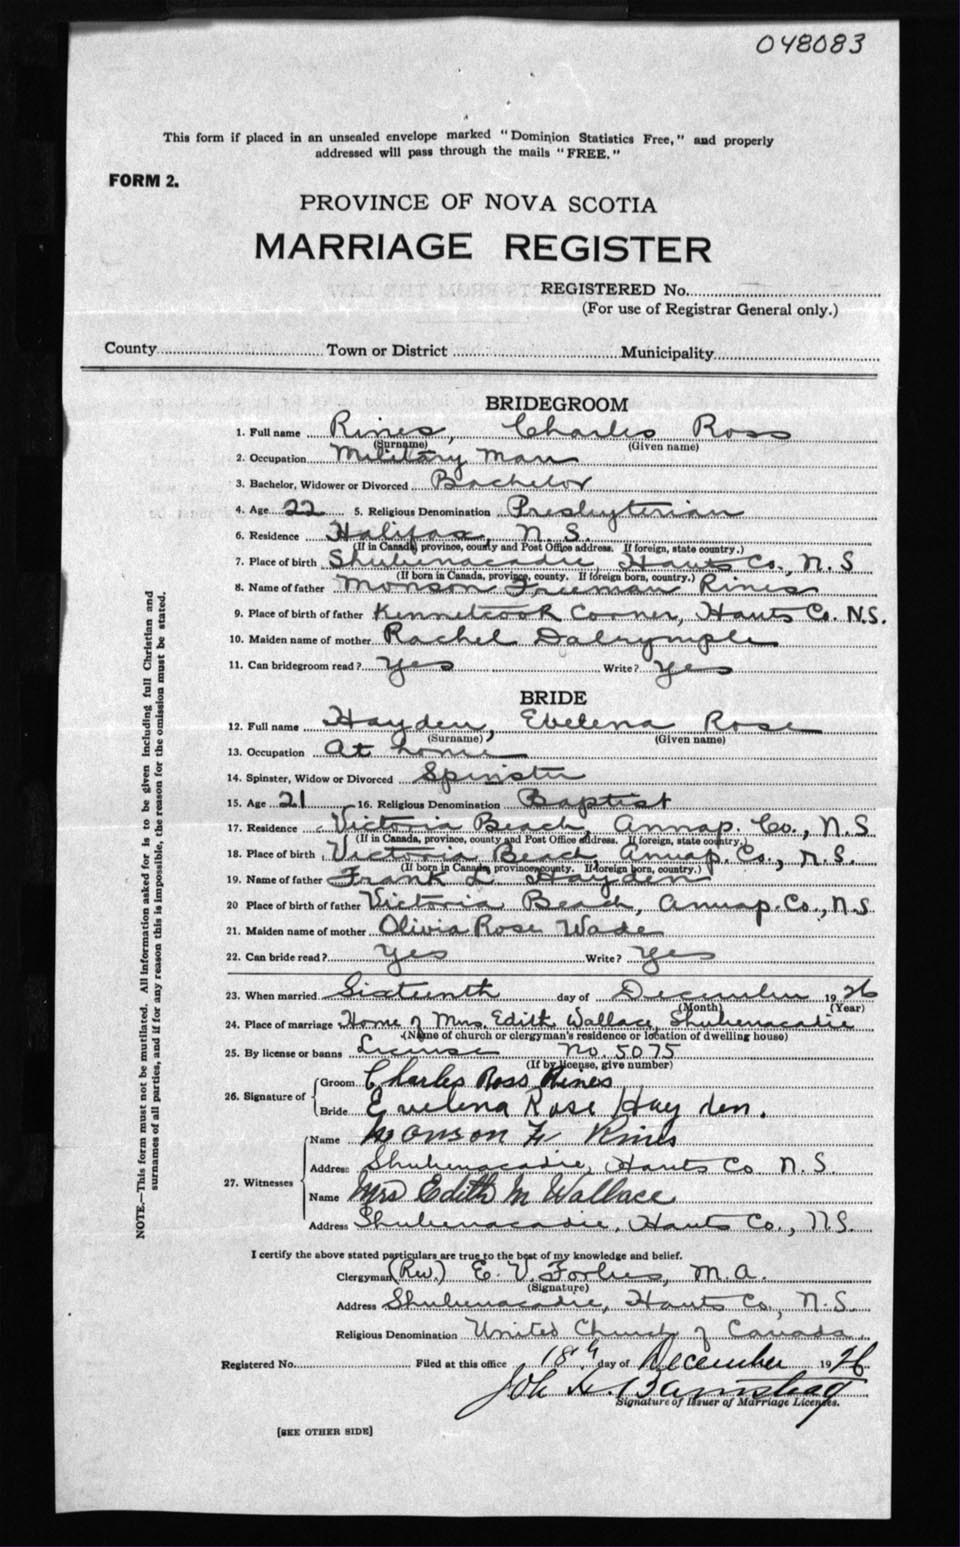 048083
This form if placed in an unsealed envelope marked "Dominion Statistics Free," and properly
addressed will pass through the mails "FREE."
FORM 2.
PROVINCE OF NOVA SCOTIA
MARRIAGE REGISTER
REGISTERED No.
(For use of Registrar General only.)
County Town or District Municipality
BRIDEGROOM
1. Full name Rines, Charles Ross
(Surname) (Given name)
2. Occupation Military Man
3. Bachelor, Widower or Divorced Bachelor
4. Age 22 5. Religious Denomination Presbyterian
6. Residence Halifax, N.S.
(If in Canada, province, county and Post Office address. If foreign, state country.)
7. Place of birth Shubenacadie, Hants Co., N.S
(If born in Canada, province, county. If foreign born, country.)
8. Name of father Monson Freeman Rines
9. Place of birth of father Kennetcook Corner, Hants Co. N.S.
10. Maiden name of mother Rachel Dalrymple
11. Can bridegroom read? Yes Write? Yes
BRIDE
12. Full name Hayden, Evelena Rose
(Surname) (Given name)
13. Occupation At home
14. Spinster, Widow or Divorced Spinster
15. Age 21 16. Religious Denomination Baptist
17. Residence Victoria Beach, Annap. Co., N.S
(If in Canada, province, county and Post Office address. If foreign, state country.)
18. Place of birth Victoria Beach, Annap. Co., N.S.
(If born in Canada, province, county. If foreign born, country.)
19. Name of father Frank L Hayden
20 Place of birth of father Victoria Beach, Annap. Co., N.S.
21. Maiden name of mother Olivia Rose Wade
22. Can bride read? Yes Write? Yes
23. When married Sixteenth day of December 1926
(Month) (Year)
24. Place of marriage Home of Mrs. Edith Wallace, Shubenacadie
(Name of church or clergyman's residence or location of dwelling house)
25. By license or banns License No. 5075
(If by license, give number)
26. Signature of Groom Charles Ross Rines
Bride Evelena Rose Hayden.
27. Witnesses Name Monson F. Rines
Address Shubenacadie, Hants Co N.S.
Name Mrs Edith M Wallace
Address Shubenacadie, Hants Co., N.S.
I certify the above stated particulars are true to the best of my knowledge and belief.
Clergyman (Rev.) E. V. Forbes, M.A.
(Signature)
Address Shubenacadie, Hants Co., N.S.
Religious Denomination United Church of Canada.
Registered No. Filed at this office 18th day of December 1926
Signature of Issuer of Marriage Licenses.
[SEE OTHER SIDE]
NOTE.—This form must not be mutilated. All information asked for is to be given including full Christian and
surnames of all parties, and if for any reason this is impossible, the reason for the omission must be stated.